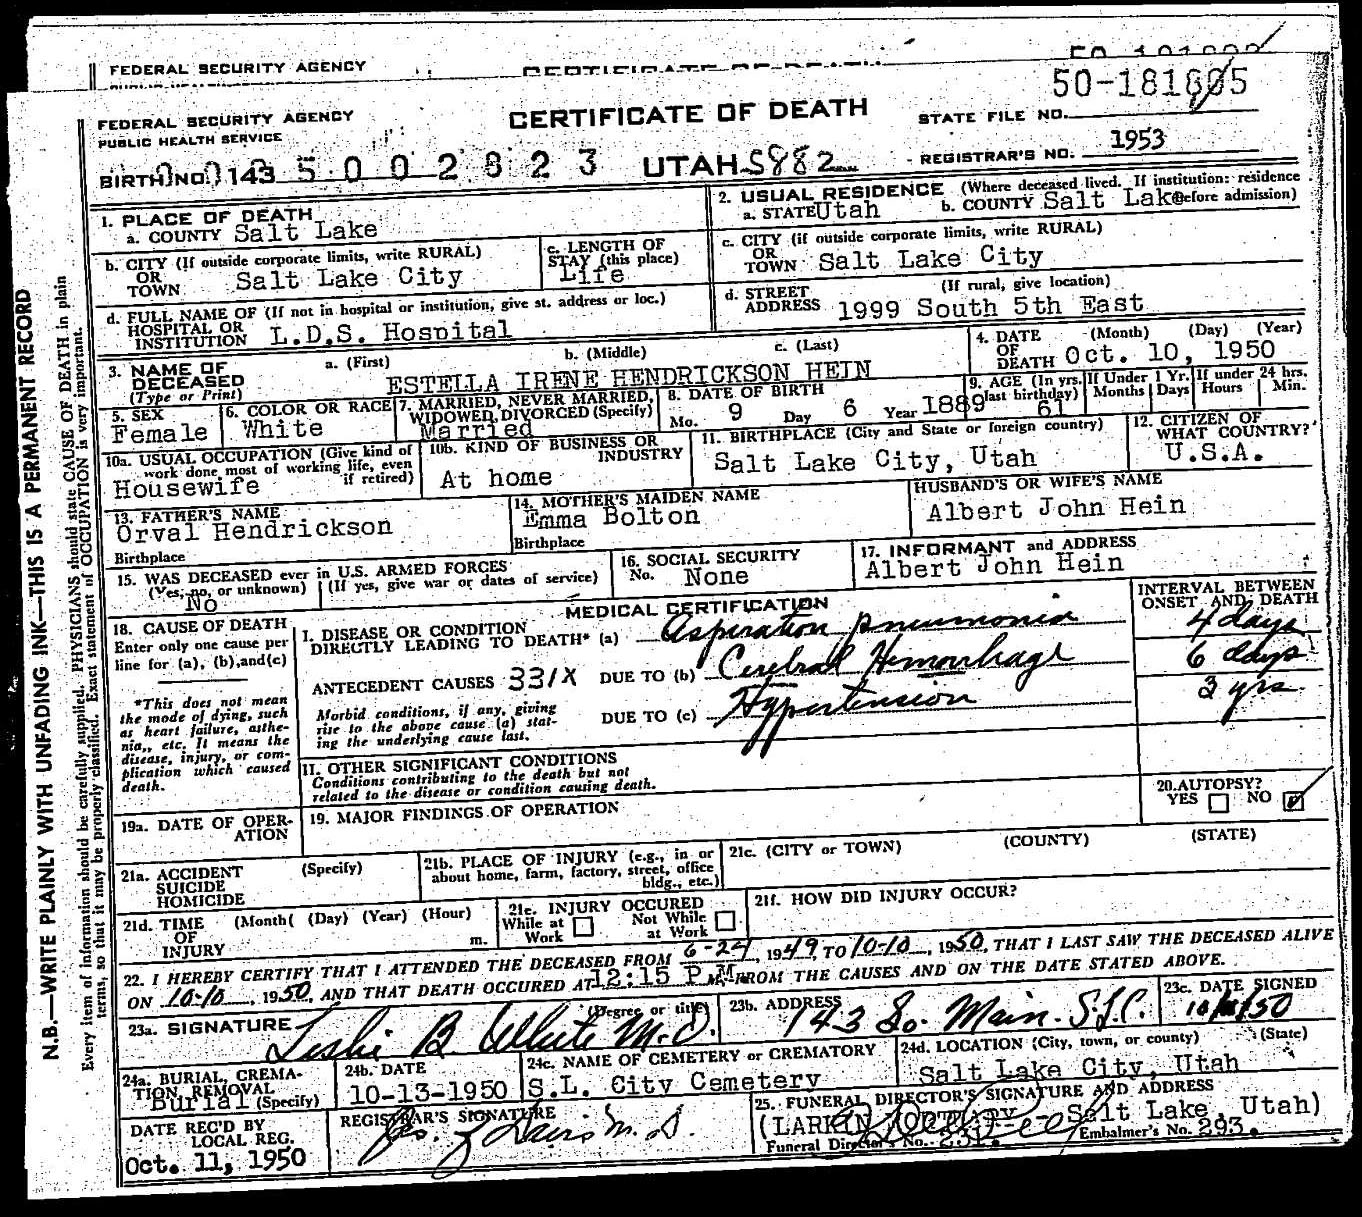 FEDERAL SECURITY AGENCY
CERTIFICATE OF DEATH
FEDERAL SECURITY AGENCY
PUBLIC HEALTH SERVICE
CERTIFICATE OF DEATH
STATE FILE NO.
REGISTRAR'S NO. 1953
BIRTH NO. 143 5 0 0 2 8 2 3 UTAH S882
1. PLACE OF DEATH
a. COUNTY Salt Lake
2. USUAL RESIDENCE (Where deceased lived. If institution: residence before admission)
a. STATE Utah b. COUNTY Salt Lake
b. CITY (If outside corporate limits, write RURAL)
OR
TOWN Salt Lake City
c. LENGTH OF
STAY (this place)
Life
c. CITY (if outside corporate limits, write RURAL)
OR
TOWN Salt Lake City
d. FULL NAME OF (If not in hospital or institution, give st. address or loc.)
HOSPITAL OR
INSTITUTION L.D.S. Hospital
d. STREET (If rural, give location)
ADDRESS 1999 South 5th East
3. NAME OF DECEASED
(Type or Print)
a. (First) b. (Middle) c. (Last)
ESTELLA IRENE HENDRICKSON HEIN
4. DATE OF DEATH (Month) (Day) (Year)
Oct. 10, 1950
5. SEX
Female
6. COLOR OR RACE
White
7. MARRIED, NEVER MARRIED,
WIDOWED, DIVORCED (Specify)
Married
8. DATE OF BIRTH
Mo. 9 Day 6 Year 1889
9. AGE (In yrs. last birthday)
61
If Under 1 Yr.
Months Days
If under 24 hrs.
Hours Min.
10a. USUAL OCCUPATION (Give kind of
work done most of working life, even
if retired)
Housewife
10b. KIND OF BUSINESS OR
INDUSTRY
At home
11. BIRTHPLACE (City and State or foreign country)
Salt Lake City, Utah
12. CITIZEN OF
WHAT COUNTRY?
U.S.A.
13. FATHER'S NAME
Orval Hendrickson
Birthplace
14. MOTHER'S MAIDEN NAME
Emma Bolton
Birthplace
HUSBAND'S OR WIFE'S NAME
Albert John Hein
15. WAS DECEASED ever in U.S. ARMED FORCES
(Yes, no, or unknown) (If yes, give war or dates of service)
No
16. SOCIAL SECURITY
No. None
17. INFORMANT and ADDRESS
Albert John Hein
MEDICAL CERTIFICATION
INTERVAL BETWEEN
ONSET AND DEATH
18. CAUSE OF DEATH
Enter only one cause per
line for (a), (b), and (c)
*This does not mean
the mode of dying, such
as heart failure, asthe-
nia,, etc. It means the
disease, injury, or com-
plication which caused
death.
I. DISEASE OR CONDITION
DIRECTLY LEADING TO DEATH* (a) Aspiration pneumonia 4 days
ANTECEDENT CAUSES 331X DUE TO (b) Cerebral Hemorrhage 6 days
Morbid conditions, if any, giving
rise to the above cause (a) stat-
ing the underlying cause last.
DUE TO (c) Hypertension 3 yrs
II. OTHER SIGNIFICANT CONDITIONS
Conditions contributing to the death but not
related to the disease or condition causing death.
19a. DATE OF OPER-
ATION
19. MAJOR FINDINGS OF OPERATION
20. AUTOPSY?
YES NO
21a. ACCIDENT (Specify)
SUICIDE
HOMICIDE
21b. PLACE OF INJURY (e.g., in or
about home, farm, factory, street, office
bldg., etc.)
21c. (CITY or TOWN) (COUNTY) (STATE)
21d. TIME (Month( (Day) (Year) (Hour)
OF
INJURY m.
21e. INJURY OCCURED
While at Work Not While at Work
21f. HOW DID INJURY OCCUR?
22. I HEREBY CERTIFY THAT I ATTENDED THE DECEASED FROM 6-24, 1949, TO 10-10, 1950, THAT I LAST SAW THE DECEASED ALIVE
ON 10-10, 1950, AND THAT DEATH OCCURED AT 12:15 P.M. FROM THE CAUSES AND ON THE DATE STATED ABOVE.
23a. SIGNATURE (Degree or title)
Leslie B. White M.D.
23b. ADDRESS
143 So. Main. S.L.C.
23c. DATE SIGNED
24a. BURIAL, CREMA-
TION, REMOVAL
(Specify)
Burial
24b. DATE
10-13-1950
24c. NAME OF CEMETERY or CREMATORY
S.L. City Cemetery
24d. LOCATION (City, town, or county) (State)
Salt Lake City, Utah
DATE REC'D BY
LOCAL REG.
Oct. 11, 1950
REGISTRAR'S SIGNATURE
25. FUNERAL DIRECTOR'S SIGNATURE AND ADDRESS
(LARKIN MORTUARY -- Salt Lake, Utah)
Funeral Director's No. 231 Embalmer's No. 293.
N.B.—WRITE PLAINLY WITH UNFADING INK—THIS IS A PERMANENT RECORD
Every item of information should be carefully supplied. PHYSICIANS should state CAUSE OF DEATH in plain
terms, so that it may be properly classified. Exact statement of OCCUPATION is very important.